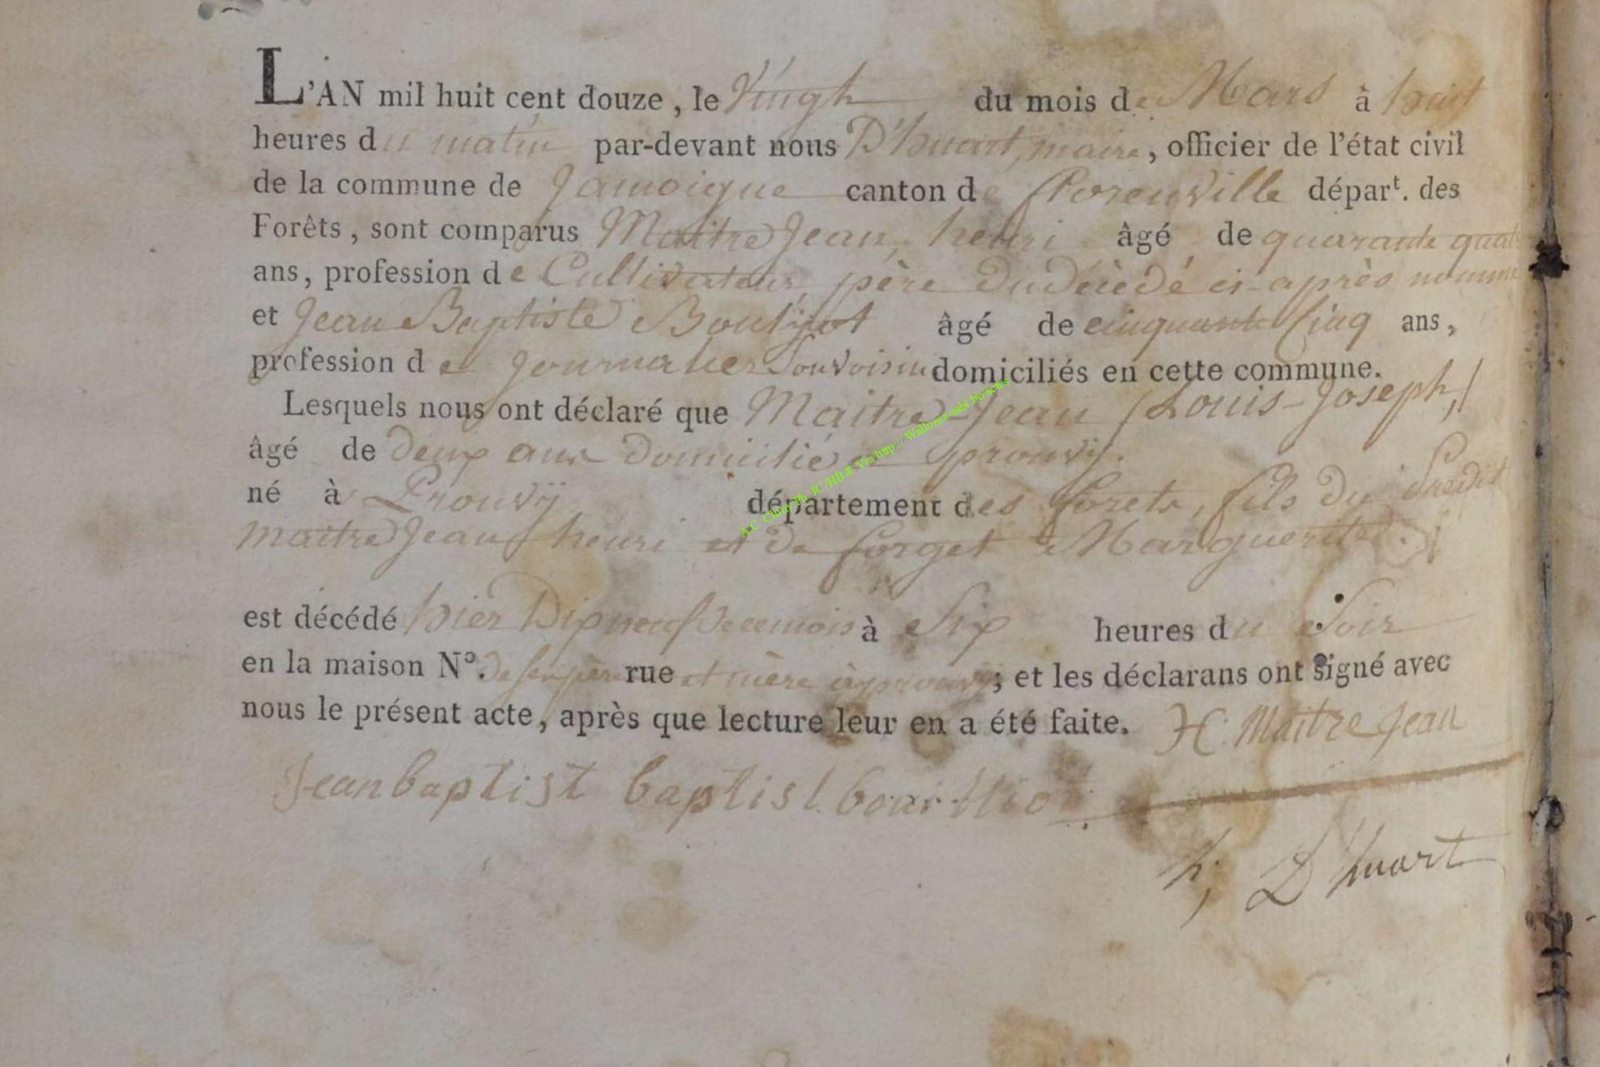 L'AN mil huit cent douze, le Vingh du mois de Mars à huit
heures du matin par-devant nous D'huart, maire, officier de l'état civil
de la commune de Jamoigne canton de florenville départ. des
Forêts, sont comparus Maitre Jean, henri âgé de quarante quatre
ans, profession de Cultivateur père du décédé ci-après nommé
et Jean Baptiste âgé de cinquante Cinq ans,
profession de Journalier Son voisin domiciliés en cette commune.
Lesquels nous ont déclaré que Maitre-Jean Louis-Joseph,
âgé de deux ans domicilié a prouvy.
né à Prouvÿ département des forets, fils du Susdit
maitre Jean henri et de forget Marguerite.
est décédé hier Dixneuf de ce mois à Six heures du Soir
en la maison N°. de ses père rue et mère à prouvy; et les déclarans ont signé avec
nous le présent acte, après que lecture leur en a été faite. H. Maitre Jean
Jean baptist baptist
h, D'huart